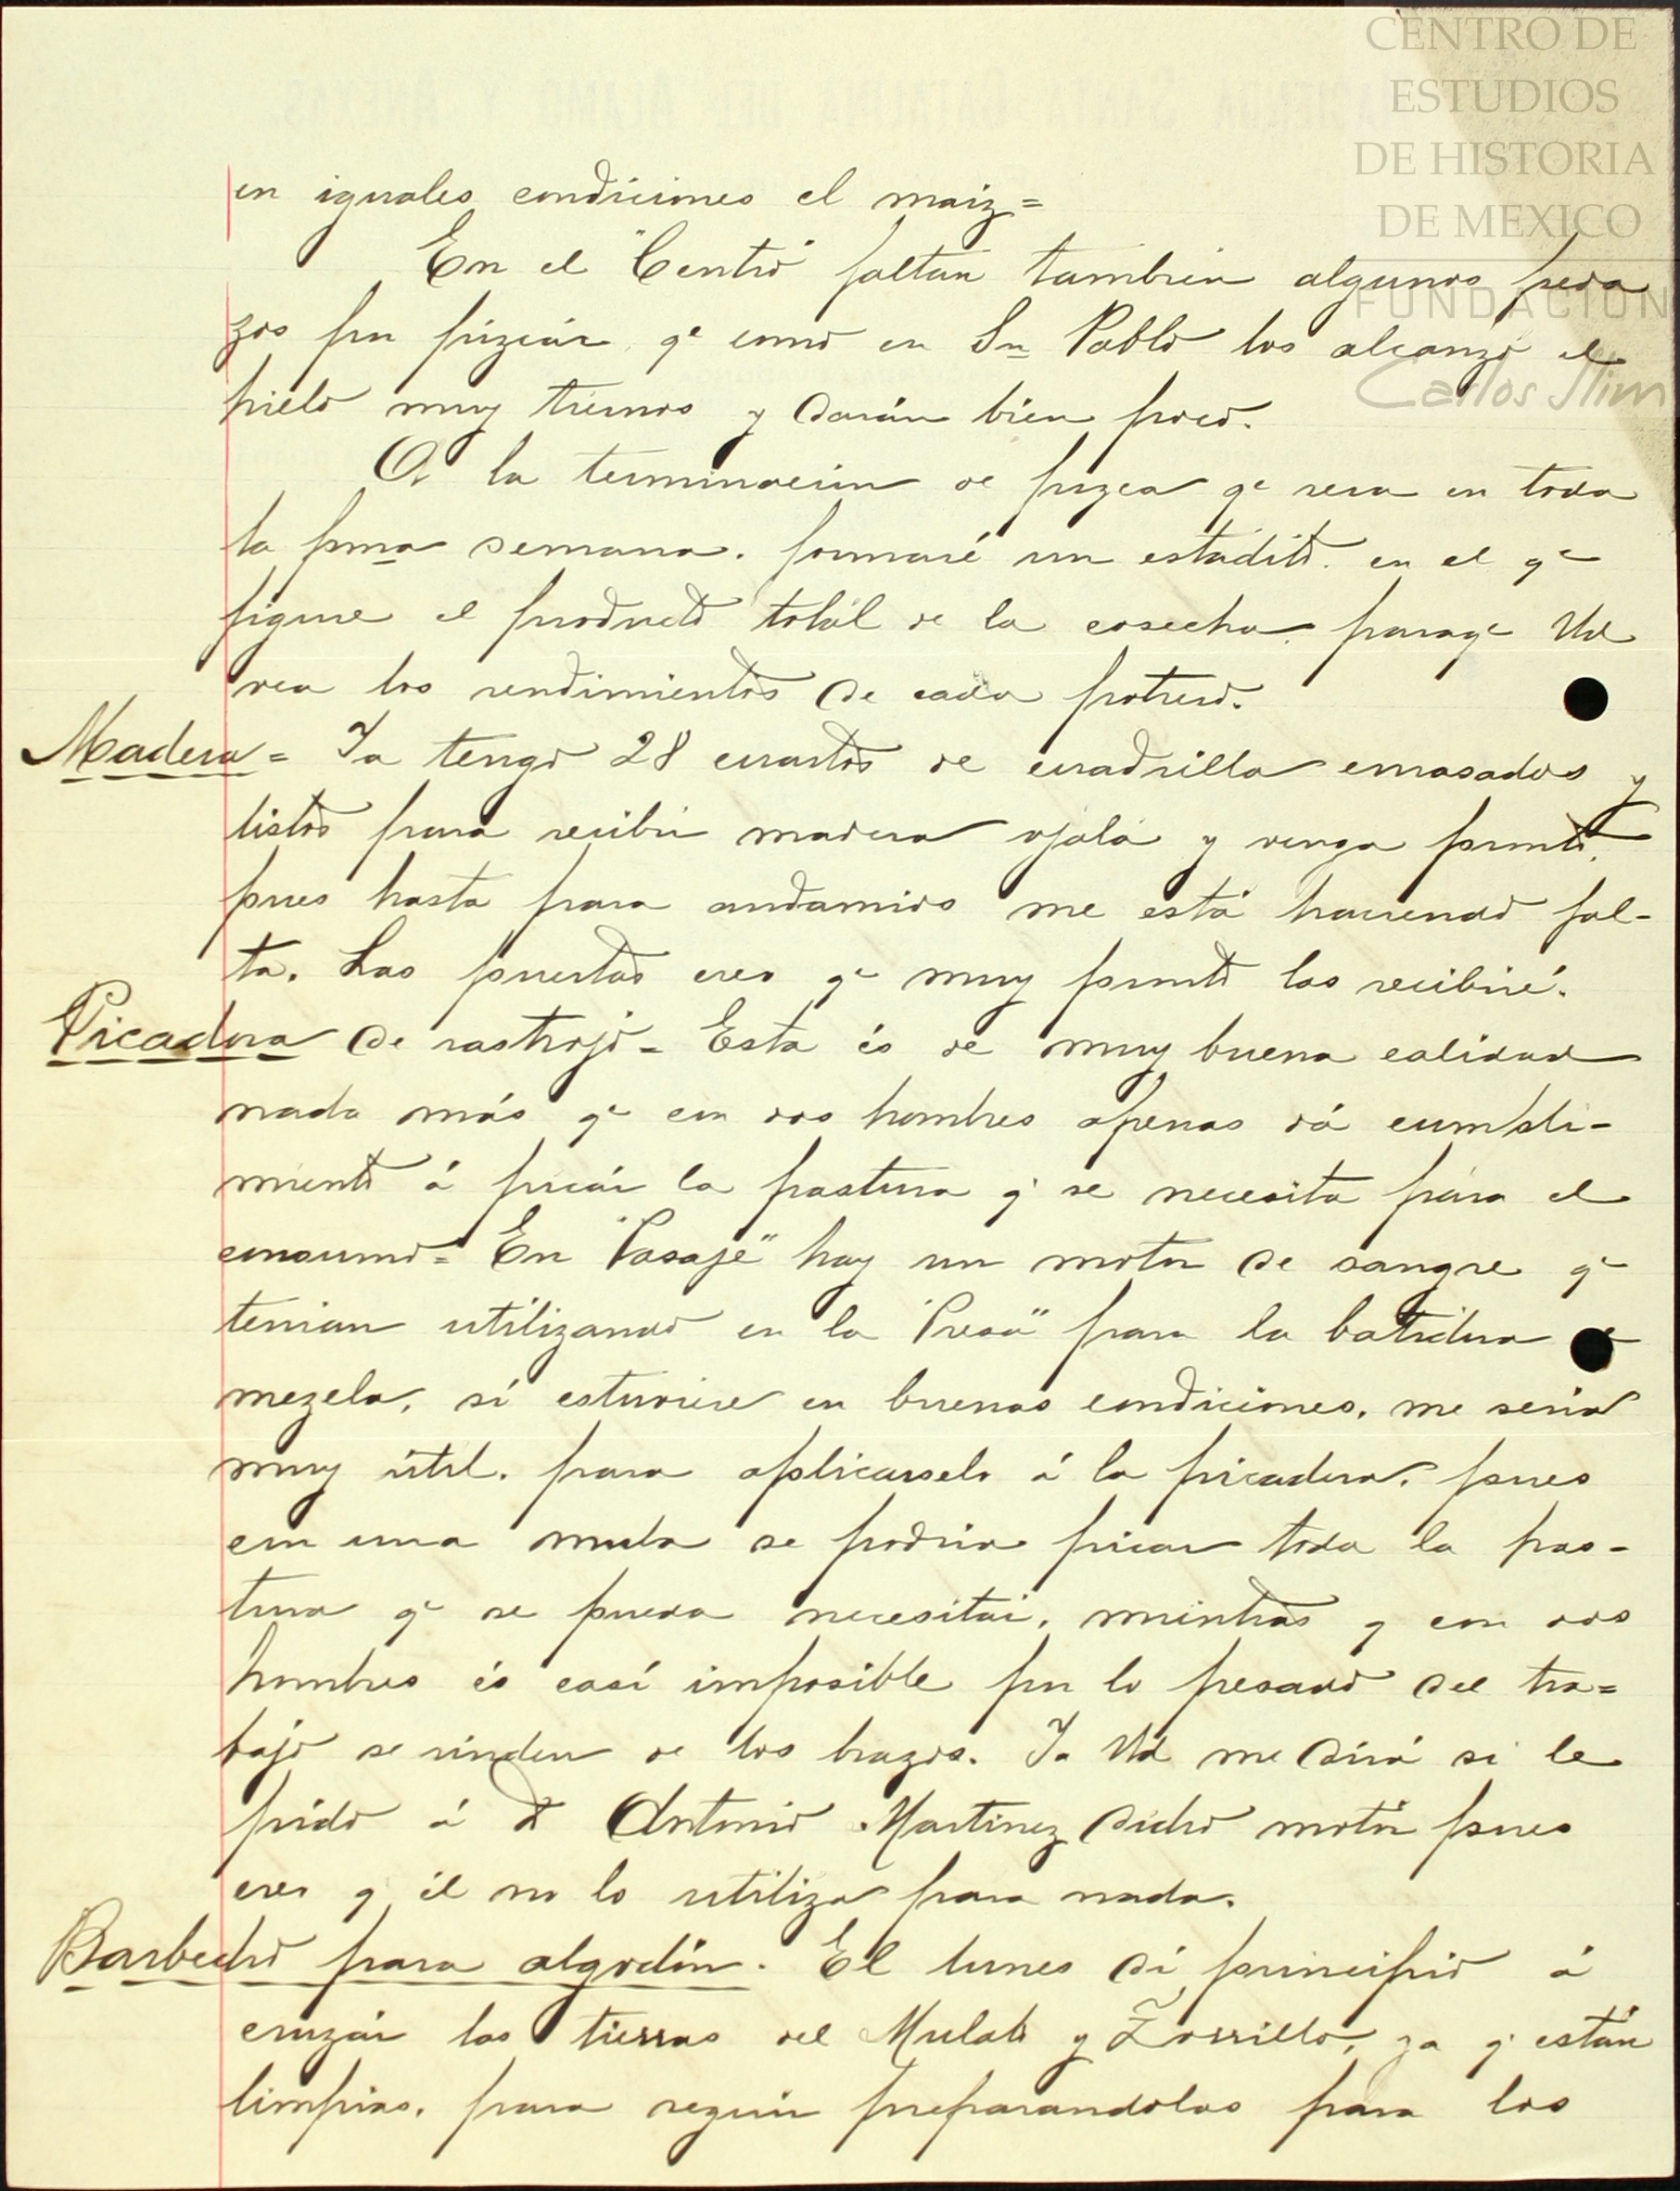 CENTRO DE
ESTUDIOS
DE HISTORIA
DE MEXICO
FUNDACIÓN
Carlos Slim
en iguales condiciones el maiz=
En el "Centro" faltan tambien algunos peda
zos pr pizcár, qe como en Sn Pablo los alcanzó el
hielo muy tiernos y darán bien poco.
A la terminacion de pizca qe sera en toda
la pma semana. formaré un estadito. en el qe
figure el producto totál de la cosecha. paraqe Ud
vea los rendimientos de cada potrero.
Madera = Ya tengo 28 cuartos de cuadrilla enrasados y
listos para recibir madera ojalá y venga pronto,
pues hasta para andamios me está haciendo fal-
ta. Las puertas creo qe muy pronto las recibiré.
Picadora de rastrojo = Esta és de muy buena calidad
nada más qe con dos hombres apenas dá cumpli-
miento á picár la pastura q' se necesita pára el
consumo = En "Pasaje" hay un motor de sangre qe
tenian utilizando en la "Presa" para la batidora de
mezcla, sí estuviere en buenas condiciones, me seria
muy útil. para aplicarselo á la picadora, pues
con una mula se podria picar toda la pas-
tura qe se pueda necesitar, mientras q con dos
hombres és casí imposible por lo pesado del tra=
bajo se rinden de los brazos. Ya Ud me dirá si le
pido á D Antonio Martinez dicho motór pues
creo q él no lo utiliza para nada.
Barbecho para algodón. El lunes dí principio á
cruzár las tierras del Mulato y Zorrillo, ya q' están
limpias, para seguir preparandolas para los